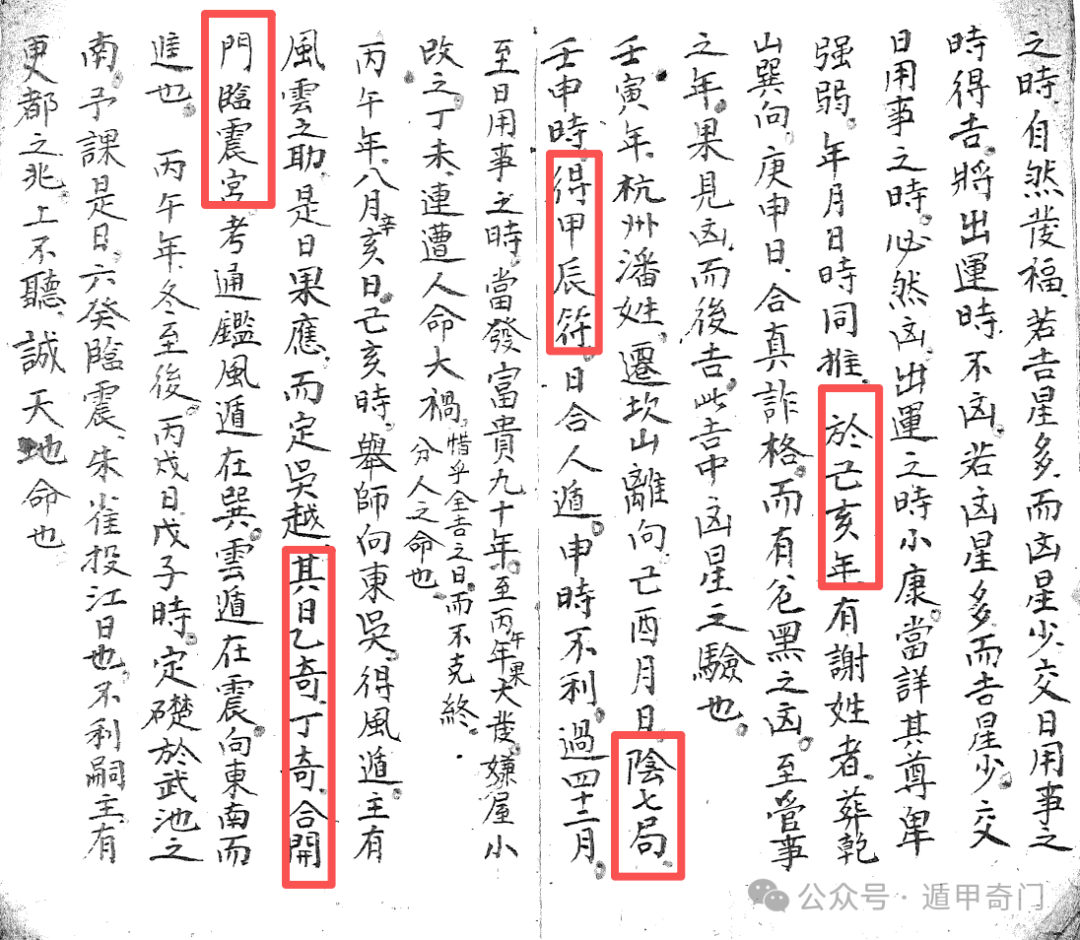 之時自然發福若吉星多而凶星少交日用事之
時得吉將出運時不凶若凶星多而吉星少交
日用事之時必然凶出運之時小康當詳其尊卑
强弱年月日時同推於己亥年有謝姓者葬乾
山巽向庚申日合真詐格而有苍黑之凶至管事
之年果見凶而後吉此吉中凶星之驗也
壬寅年杭州潘姓遷坎山離向己酉月日陰七局
壬申時得甲辰符日合人遁申時不利過四十二月
至日用事之時當發富貴九十年至丙午年果大發嫌屋小
改之丁未連遭人命大禍惜乎全吉之日而不克終分人之命也
丙午年八月辛亥日己亥時舉師向東吳得風遁主有
風雲之助是日果應而定吳越其日乙奇丁奇合開
門臨震宮考通鑑風遁在巽雲遁在震向東南而
進也丙午年冬至後丙戌日戊子時定礎於武池之
南予課是日六癸臨震朱雀投江日也不利嗣主有
更都之兆上不聽誠天地命也
公众号·遁甲奇门